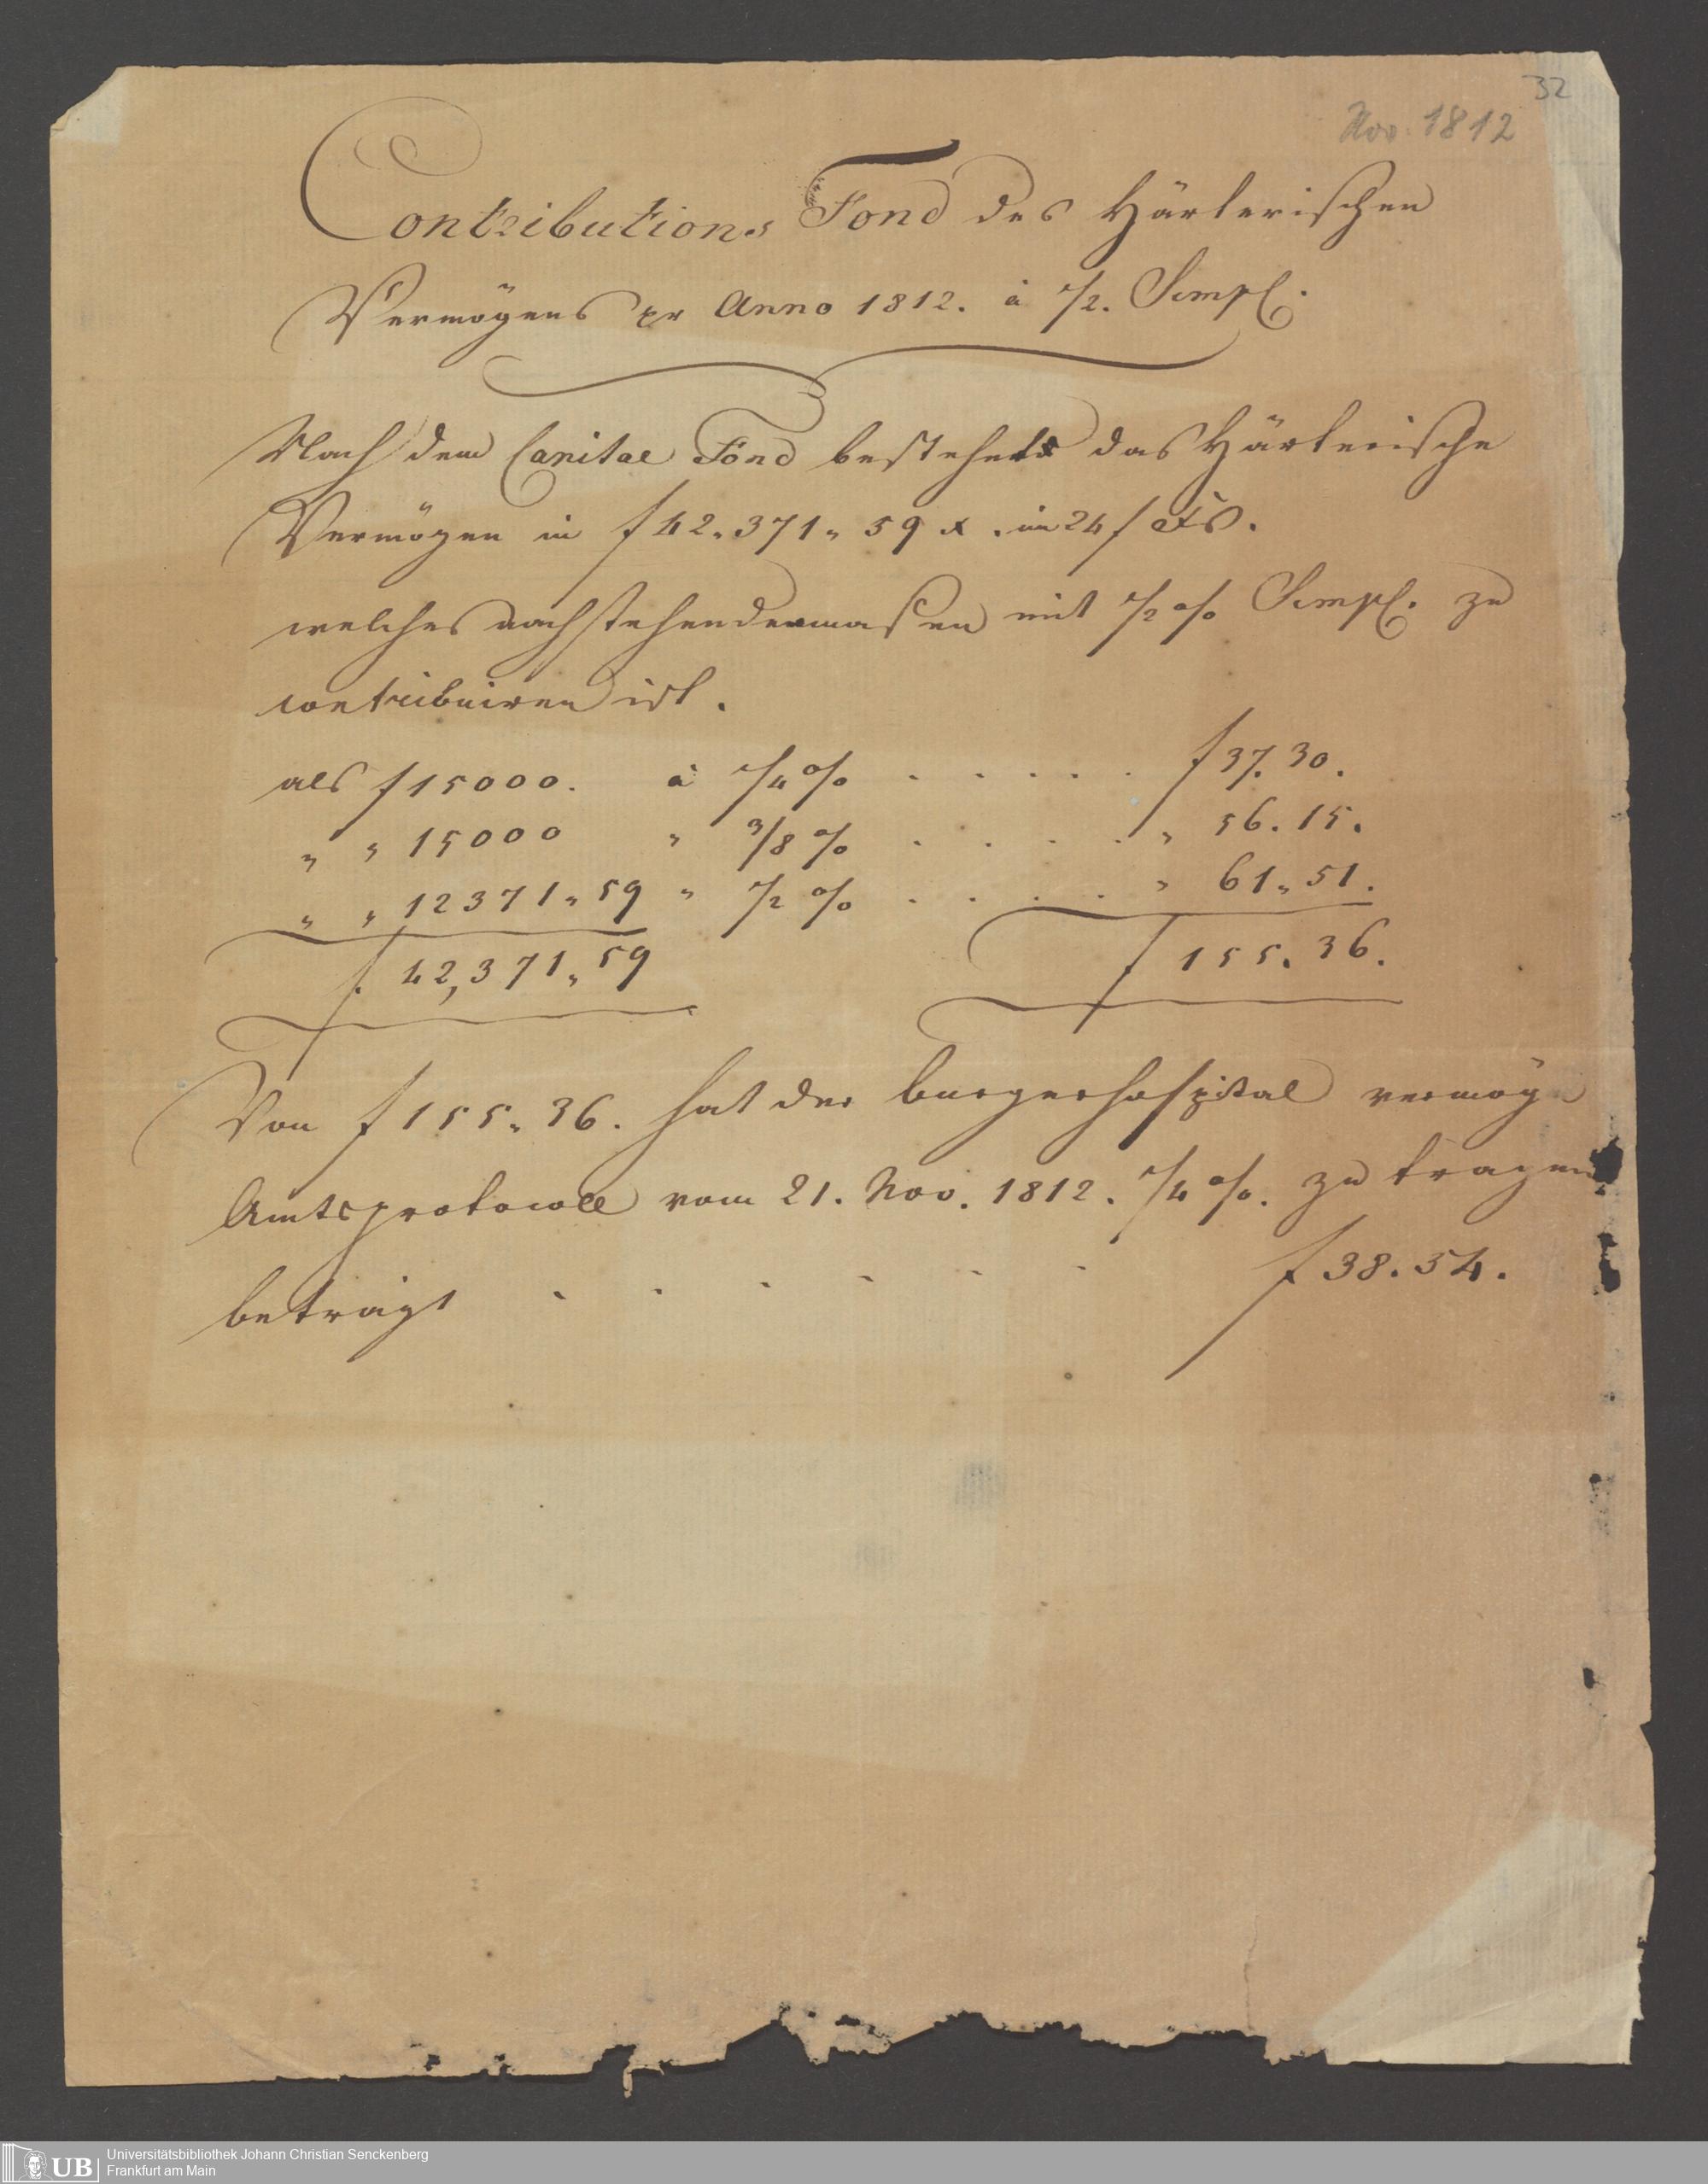 32
Nov. 1812
Contributions Fond des Härterischen
Vermögens pr Anno 1812. à 1/2. Simpl.
Nach dem Capital Fond bestehet das Härterische
Vermögen in f 42.371 „ 59 x. im 24 f Fs.
welches nachstehendermaßen mit 1/2 % Simpl. zu
contribuiren ist.
als f 15000. à 1/4 % . . . . . f 37. 30.
„ „ 15000 „ 3/8 % . . . . „ 56. 15.
„ „ 12371 „ 59 „ 1/2 % . . . . „ 61 „ 51.
f. 42,371 „ 59 f 155. 36.
Von f 155 „ 36. hat der Burgerhospital vermög
Amtsprotocoll vom 21. Nov. 1812. 1/4 %. zu tragen
beträgt . . . . . . f 38. 54.
UB Universitätsbibliothek Johann Christian Senckenberg
Frankfurt am Main